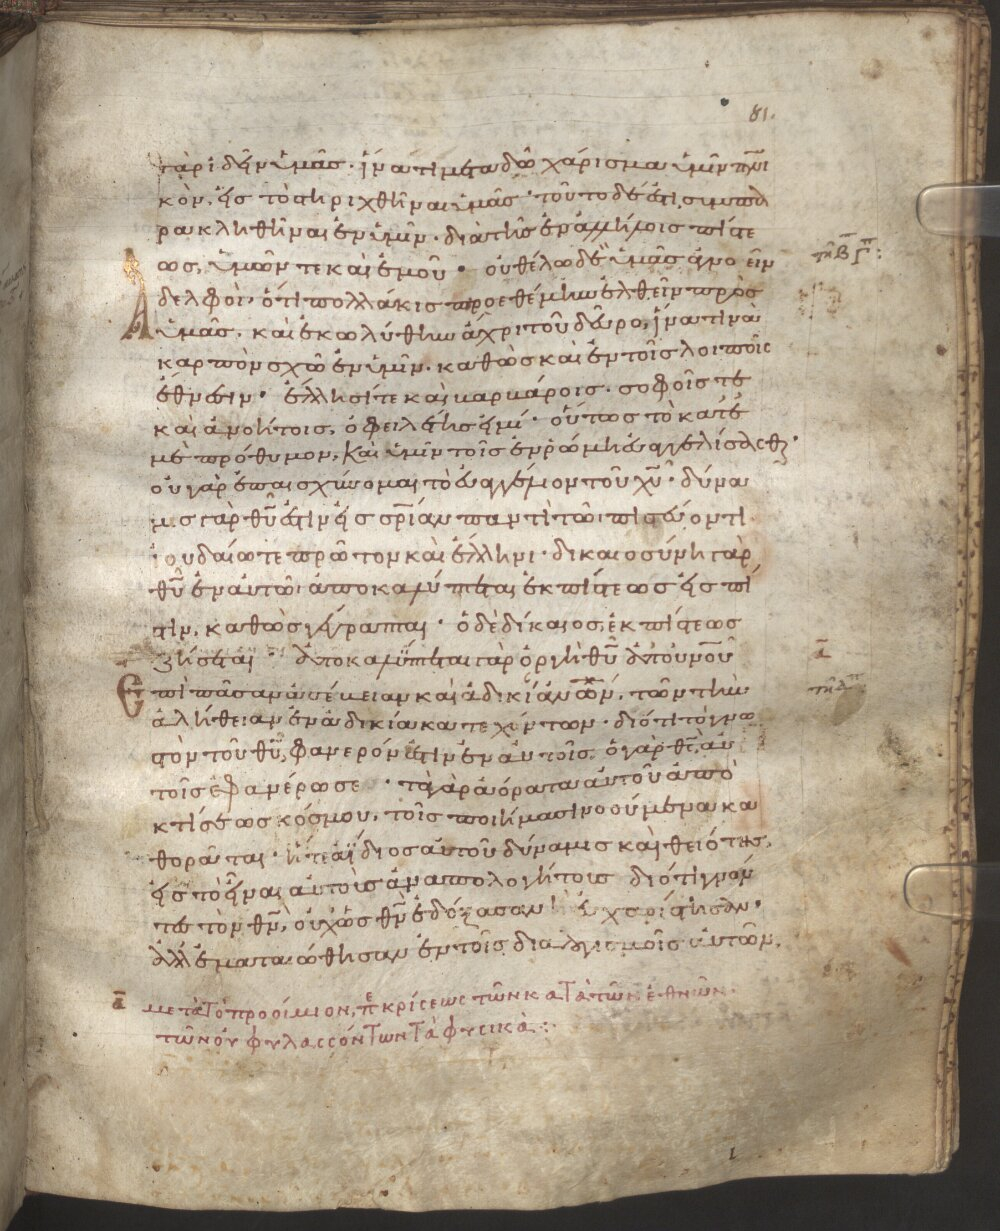 81.
γὰρ ἰδεῖν ὑμᾶς · ἵνα τι μεταδῶ χάρισμα ὑμῖν πνι
κὸν, εἰς τὸ στηριχθῆναι ὑμᾶς · τοῦτο δέ ἐστι, συμπα
ρακληθῆναι ἐν ὑμῖν · διὰ τῆς ἐν ἀλλήλοις πίστε
ως, ὑμῶν τε καὶ ἐμοῦ · οὐ θέλω δὲ ὑμᾶς ἀγνοεῖν
τῆ Β
ἀδελφοὶ · ὅτι πολλάκις προεθέμην ἐλθεῖν πρὸς
ὑμᾶς, καὶ ἐκωλύθην ἄχρι τοῦ δεῦρο, ἵνα τινὰ
καρπὸν σχῶ ἐν ὑμῖν · καθὼς καὶ ἐν τοῖς λοιποῖς
ἔθνεσιν · ἕλλησί τε καὶ βαρβάροις · σοφοῖς τε
καὶ ἀνοήτοις, ὀφειλέτης εἰμί · οὕτως τὸ κατ' ἐ
μὲ πρόθυμον, καὶ ὑμῖν τοῖς ἐν ῥώμη εὐαγγελίσασθαι ·
οὐ γὰρ ἐπαισχύνομαι τὸ εὐαγγέλιον τοῦ χυ · δύνα
μις γὰρ θυ ἐστὶν εἰς σρίαν παντὶ τῶ πιστεύοντι
ἰουδαίω τε πρῶτον καὶ ἕλληνι · δικαιοσύνη γὰρ
θυ ἐν αὐτῶ ἀποκαλύπτεται ἐκ πίστεως εἰς πί
στιν, καθὼς γέγραπται · ὁ δὲ δίκαιος, ἐκ πίστεως
ζήσεται · ἀποκαλύπτεται γὰρ ὀργὴ θυ ἀπ' ουνου
α
ἐπὶ πᾶσαν ἀσέβειαν καὶ ἀδικίαν ανων, τῶν τὴν
ἀλήθειαν ἐν ἀδικία κατεχόντων · διότι τὸ γνω
στὸν τοῦ θυ, φανερόν ἐστιν ἐν αὐτοῖς, ὁ γὰρ θς αὐ
τοῖς ἐφανέρωσε · τὰ γὰρ ἀόρατα αὐτοῦ ἀπὸ
κτίσεως κόσμου, τοῖς ποιήμασι νοούμενα κα
θορᾶται · ἥ τε ἀΐδιος αὐτοῦ δύναμις καὶ θειότης,
εἰς τὸ εἶναι αὐτοὺς ἀναπολογήτους διότι γνόν
τες τὸν θν, οὐχ ὡς θν ἐδόξασαν ἢ εὐχαρίστησαν ·
ἀλλ' ἐματαιώθησαν ἐν τοῖς διαλογισμοῖς αὐτῶν,
α μετὰ τὸ προοίμιον, πε κρίσεως τῶν κατὰ τῶν ἐθνῶν
τῶν οὐ φυλασσόντων τὰ φυσικὰ :
1